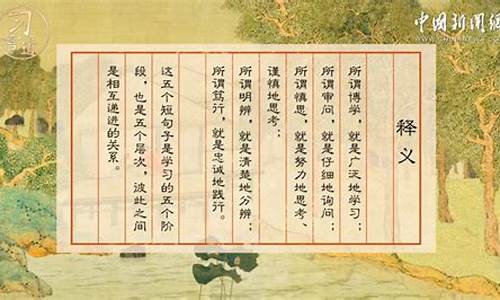 释义
所谓博学，就是广泛地学习；
所谓审问，就是仔细地询问；
所谓慎思，就是努力地思考、
谨慎地思考；
所谓明辨，就是清楚地分辨；
所谓笃行，就是忠诚地践行。
这五个短句子是学习的五个阶
段，也是五个层次，彼此之间
是相互递进的关系。
中国新闻网
习